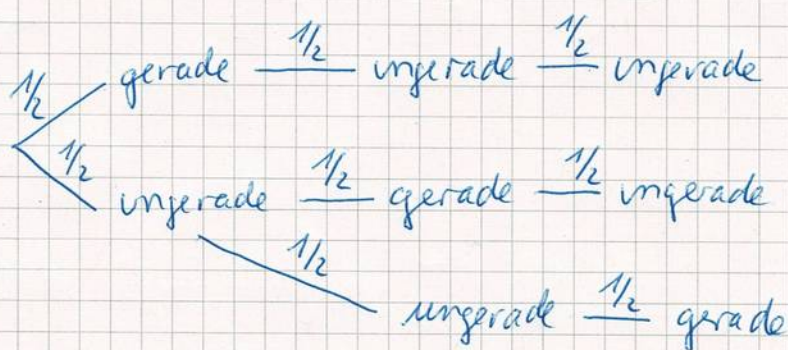 1/2 gerade 1/2 ungerade 1/2 ungerade
1/2 ungerade 1/2 gerade 1/2 ungerade
1/2 ungerade 1/2 gerade